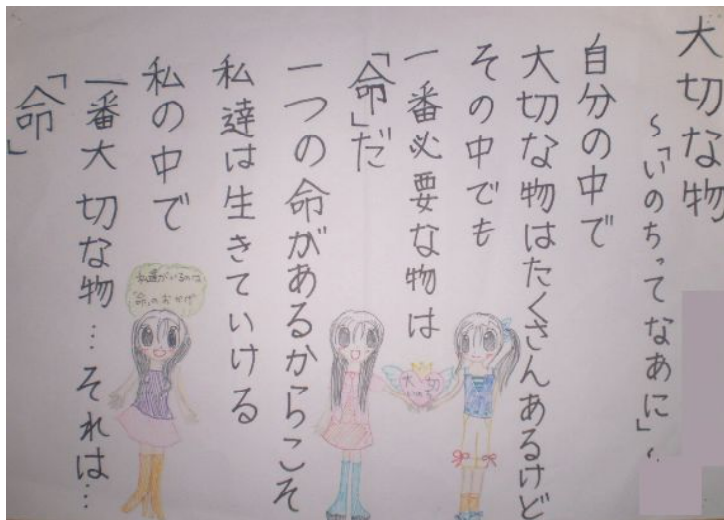 大切な物
～「いのちってなあに」～
自分の中で
大切な物はたくさんあるけど
その中でも
一番必要な物は
「命」だ
一つの命があるからこそ
私達は生きていける
私の中で
一番大切な物…それは…
「命」
大切
いのち
私達がいるのは、
「命」のおかげ